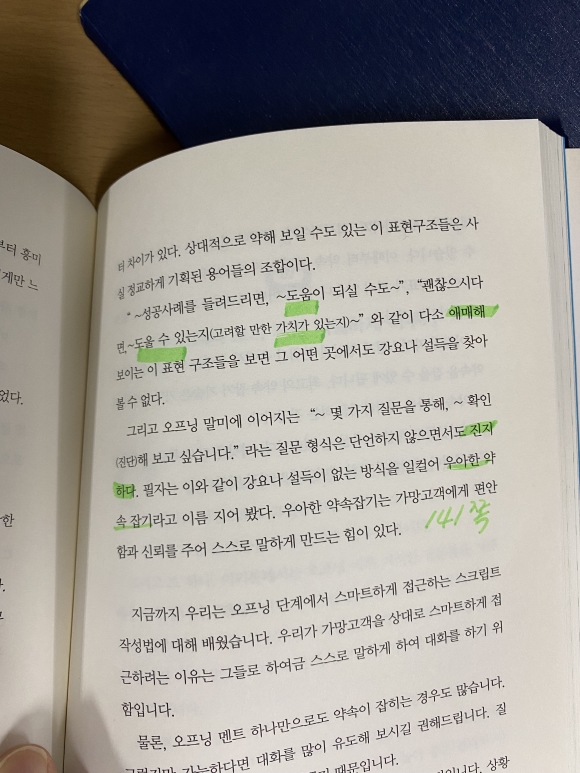 부터 흥미
게만 느
었다.
한
터 차이가 있다. 상대적으로 약해 보일 수도 있는 이 표현구조들은 사
실 정교하게 기획된 용어들의 조합이다.
“ ~성공사례를 들려드리면, ~도움이 되실 수도~”, “괜찮으시다
면,~도울 수 있는지(고려할 만한 가치가 있는지)~” 와 같이 다소 애매해
보이는 이 표현 구조들을 보면 그 어떤 곳에서도 강요나 설득을 찾아
볼 수 없다.
그리고 오프닝 말미에 이어지는 “~ 몇 가지 질문을 통해, ~ 확인
(진단)해 보고 싶습니다.” 라는 질문 형식은 단언하지 않으면서도 진지
하다. 필자는 이와 같이 강요나 설득이 없는 방식을 일컬어 우아한 약
속 잡기라고 이름 지어 봤다. 우아한 약속잡기는 가망고객에게 편안
함과 신뢰를 주어 스스로 말하게 만드는 힘이 있다.
141쪽
지금까지 우리는 오프닝 단계에서 스마트하게 접근하는 스크립트
작성법에 대해 배웠습니다. 우리가 가망고객을 상대로 스마트하게 접
근하려는 이유는 그들로 하여금 스스로 말하게 하여 대화를 하기 위
함입니다.
물론, 오프닝 멘트 하나만으로도 약속이 잡히는 경우도 많습니다.
그렇지만 가능하다면 대화를 많이 유도해 보시길 권해드립니다. 질
때문입니다. 상황